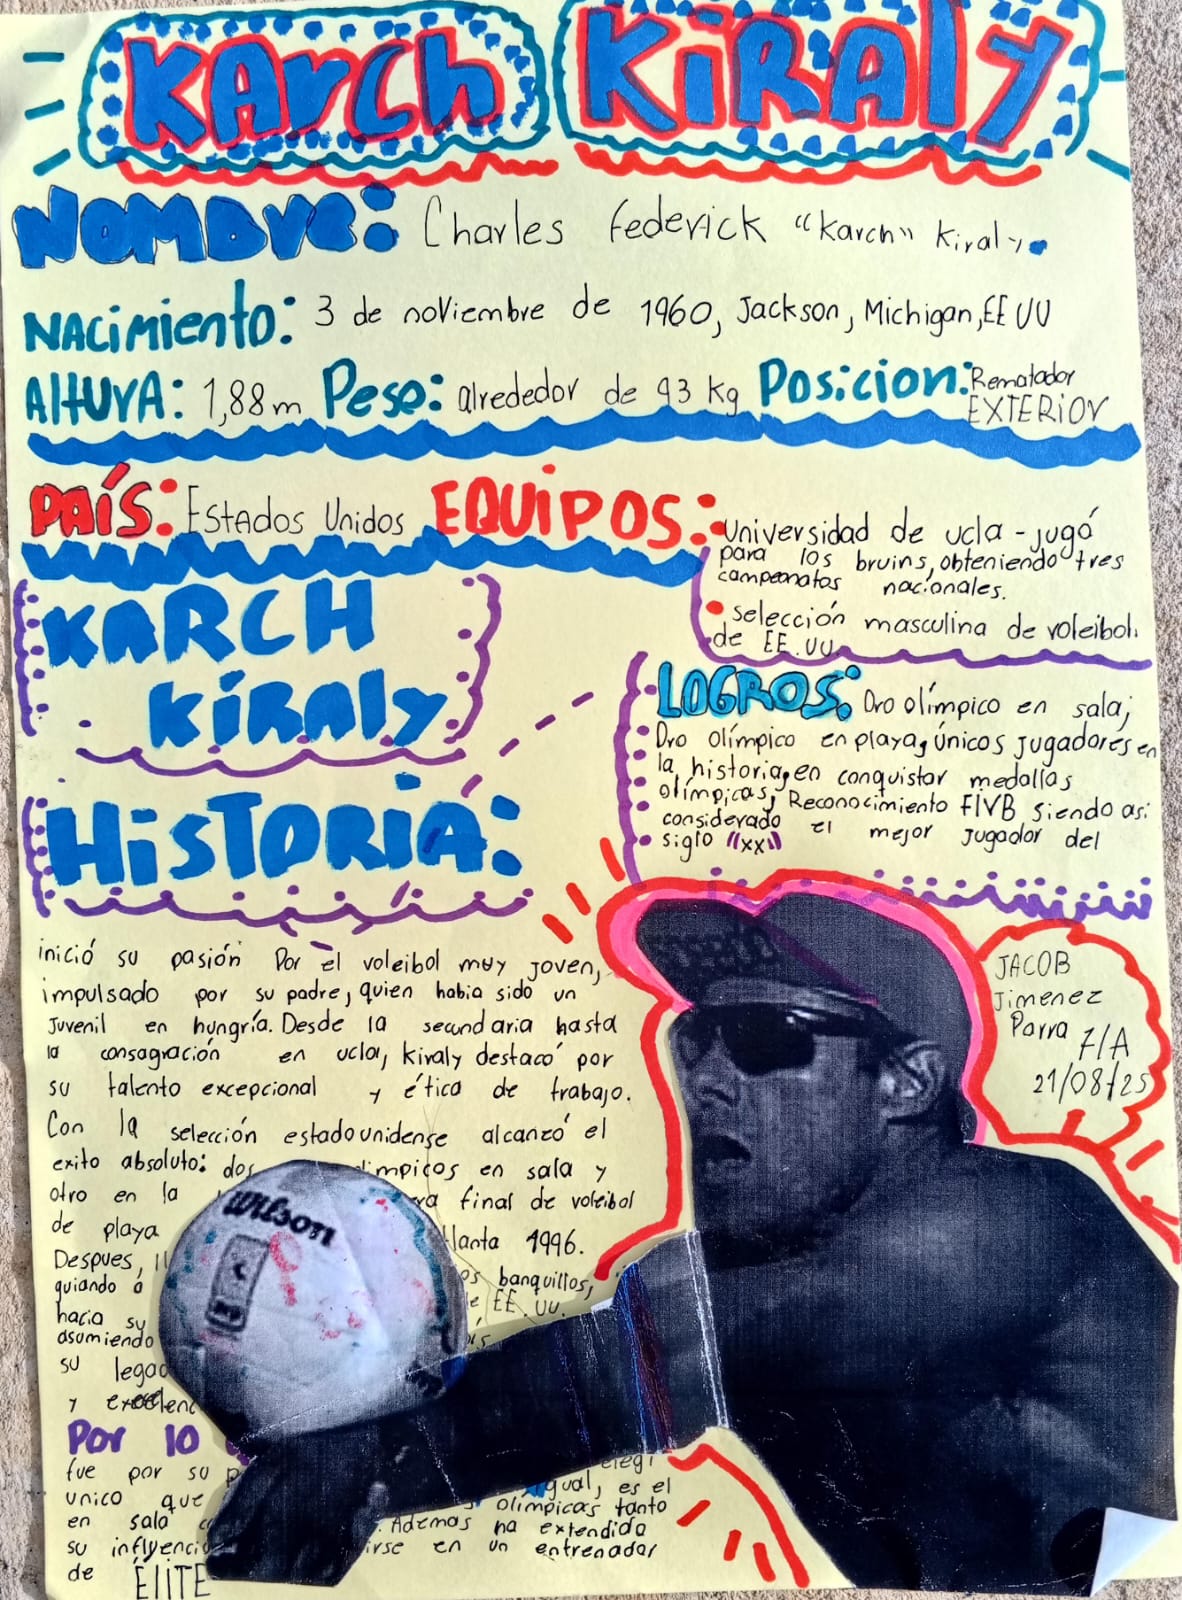 KArch KiRAly
NOMBre: Charles Federick "Karch" Kiraly.
NACimiento: 3 de noviembre de 1960, Jackson, Michigan, EE UU
AltUrA: 1,88m Peso: alrededor de 93 kg Posicion: Rematador
EXTERIOr
PAÍS: Estados Unidos EQUIPOS: Universidad de ucla - jugó
para los bruins, obteniendo tres
campeonatos nacionales.
selección masculina de voleibol.
de EE.UU.
KARCH
KiRAly
LOGROS: Oro olímpico en sala;
Oro olímpico en playa, únicos jugadores en
la historia, en conquistar medallas
olímpicas, Reconocimiento FIVB, siendo asi
considerado el mejor jugador del
siglo "xx"
HiSTORiA:
inició su pasión Por el voleibol muy joven,
impulsado por su padre, quien habia sido un
Juvenil en hungría. Desde la secundaria hasta
la consagración en ucla, kiraly destacó por
su talento excepcional y ética de trabajo.
Con la selección estadounidense alcanzó el
exito absoluto: dos límpicos en sala y
otro en la final de voleibol
de playa lanta 1996.
Despues, banquillos,
guiando a EE.UU.
hacia su
asumiendo
su legad
y excelenc
Por lo
fue por su p elegi
unico que gual, es el
en sala olimpicas tanto
su influencia . Ademas ha extendido
irse en un entrenador
de ÉliTE
Wilson
JACOB
Jimenez
Parra 7/A
21/08/25